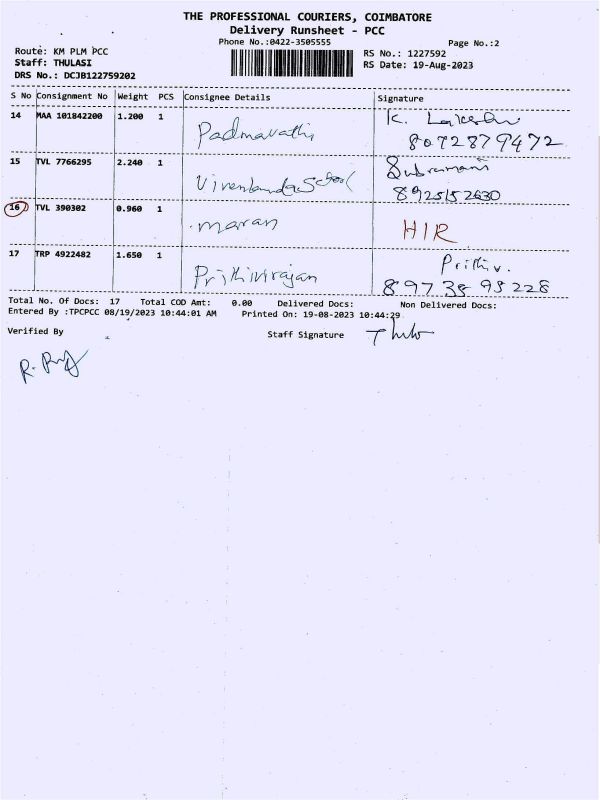 THE PROFESSIONAL COURIERS, COIMBATORE
Delivery Runsheet - PCC
Phone No.:0422-3505555
Page No.:2
Route: KM PLM PCC
RS No.: 1227592
Staff: THULASI
RS Date: 19-Aug-2023
DRS No.: DCJB122759202
S No Consignment No Weight PCS Consignee Details Signature
14 MAA 101842200 1.200 1 Padmavathi K.
8072879472
15 TVL 7766295 2.240 1 School Subramani
8925152630
16 TVL 390302 0.960 1 maran HIR
17 TRP 4922482 1.650 1 Prithivirajan Prithiv.
89738 95228
Total No. Of Docs: 17 Total COD Amt: 0.00 Delivered Docs: Non Delivered Docs:
Entered By :TPCPCC 08/19/2023 10:44:01 AM Printed On: 19-08-2023 10:44:29
Verified By Staff Signature